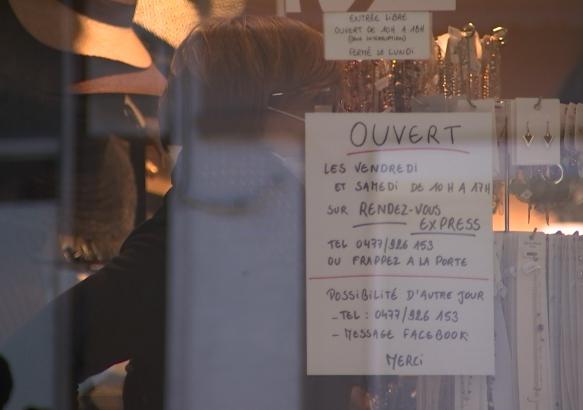 ENTRÉE LIBRE
OUVERT DE 10H A 18H
(SANS INTERRUPTION)
FERMÉ LE LUNDI
OUVERT
LES VENDREDI
ET SAMEDI DE 10 H A 17H
SUR RENDEZ-VOUS
EXPRESS
TEL 0477/926 153
OU FRAPPEZ A LA PORTE
POSSIBILITÉ D'AUTRE JOUR
- TEL : 0477/926 153
- MESSAGE FACEBOOK
MERCI